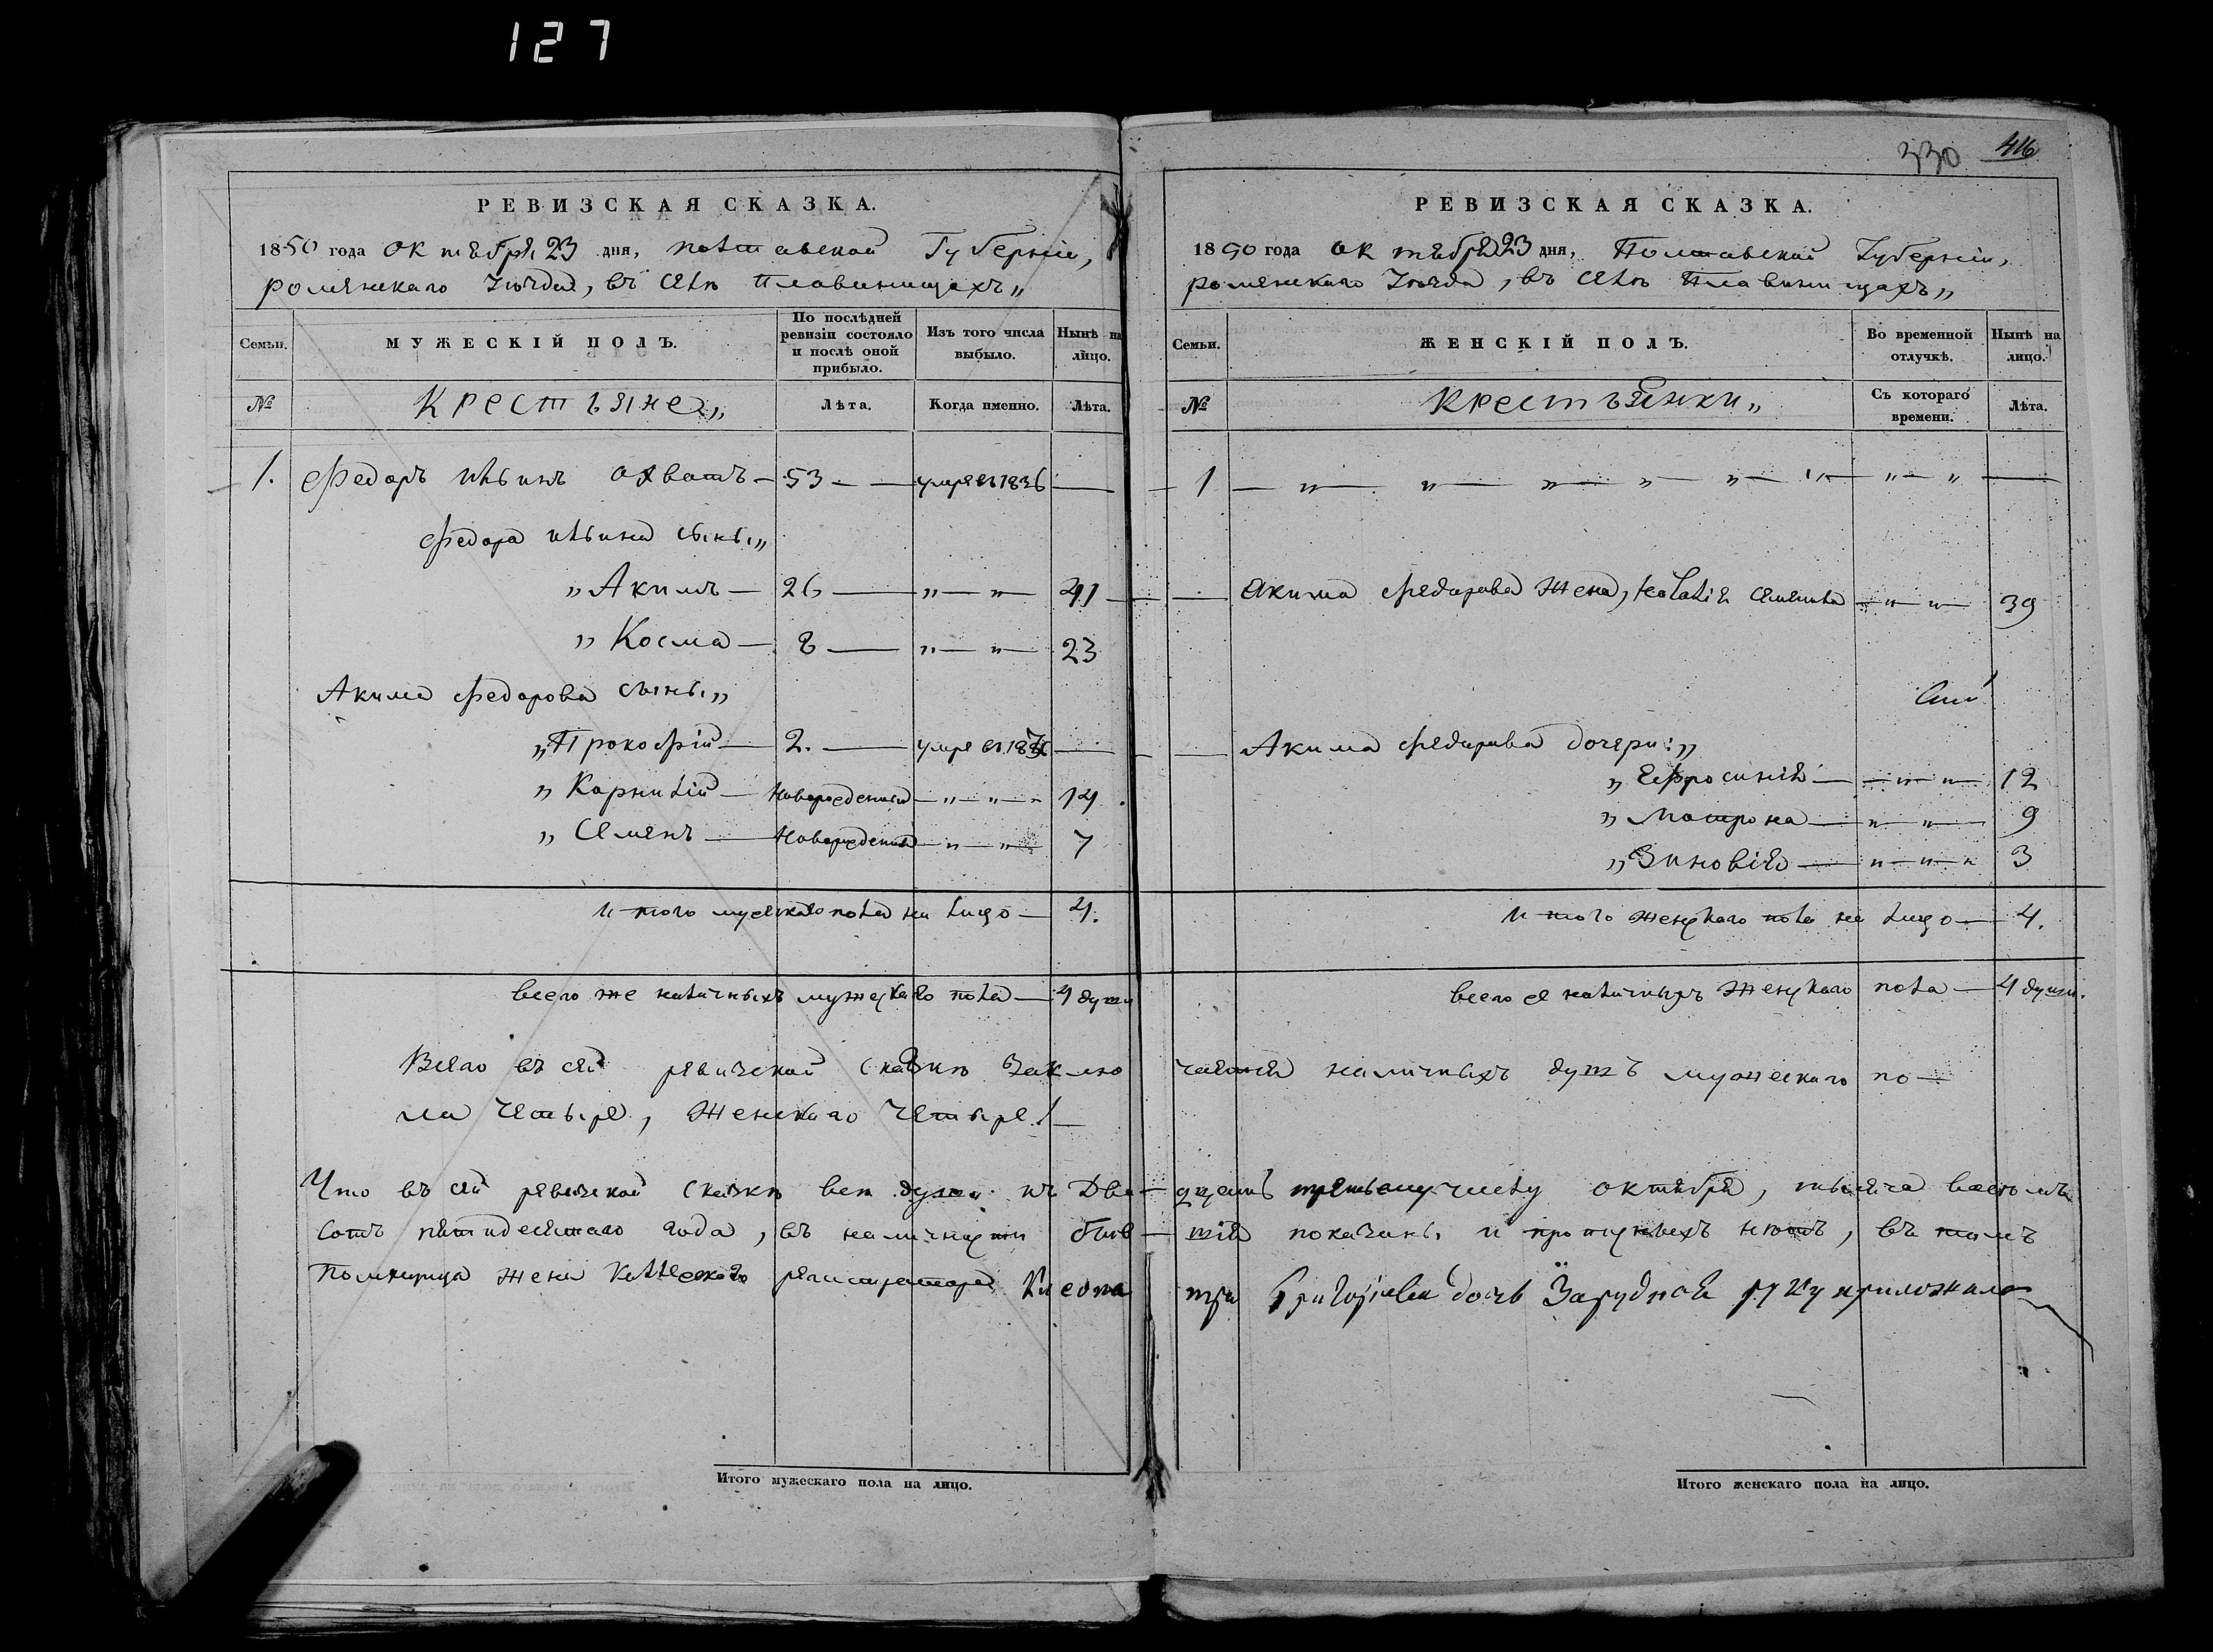 127
330 416
РЕВИЗСКАЯ СКАЗКА.
1850 года октября 23 дня, полтавской Губернiи,
роменскаго Уѣзда, въ селѣ Плавинищахъ„
Семьи. МУЖЕСКIЙ ПОЛЪ. По послѣдней ревизiи состояло и послѣ оной прибыло. Изъ того числа выбыло. Нынѣ на лицо.
№ Крестьяне„ Лѣта. Когда именно. Лѣта.
1. Федоръ ильинъ охватъ — 53 — умре въ 1836 —
Федора ильина сыны„
„ Акимъ — 26 — „ — „ — 41
„ Косма — 8 — „ — „ — 23
Акима Федорова сыны„
„ Прокофiй — 2. — умре въ —
„ Карнилiй — Новорожденный — „ — „ — 14
„ Семенъ — Новорожденный — „ — „ 7
итого мужескаго пола на лицо — 4.
всего же наличныхъ мужескаго пола — 4 души
Всего въ сей ревизской сказкѣ заклю
ла четыре, женскаго четыре!—
Что въ сей ревизской сказкѣ всѣ души къ Два—
сотъ пятидесятаго года, въ наличности быв—
Помещица жена Коллескаго регистратора Клеопа
Итого мужескаго пола на лицо.
РЕВИЗСКАЯ СКАЗКА.
1850 года октября 23 дня, Полтавской Губернiи,
роменскаго Уѣзда, въ селѣ Плавинищахъ„
Семьи. ЖЕНСКIЙ ПОЛЪ. Во временной отлучкѣ. Нынѣ на лицо.
№ Крестьянки„ Съ котораго времени. Лѣта.
1 — „ — „ — „ — „ — „ — „ — „ — „ —
— Акима Федорова Жена, Наталiя семенова — „ — „ — 39
— Акима Федорова дочери: „
„ Ефросинiя — „ — „ — 12
„ Матрона — „ — „ — 9
„ Зиновiя — „ — „ — „ 3
итого женскаго пола на лицо — 4.
всего же наличныхъ Женскаго пола — 4 души.
чается наличныхъ душъ мужескаго по—
дцать третьему числу октября, тысяча восемъ
шiя показаны и пропускныхъ нѣтъ, въ томъ
тра Григорiева дочь Зарудная руку приложила
Итого женскаго пола на лицо.